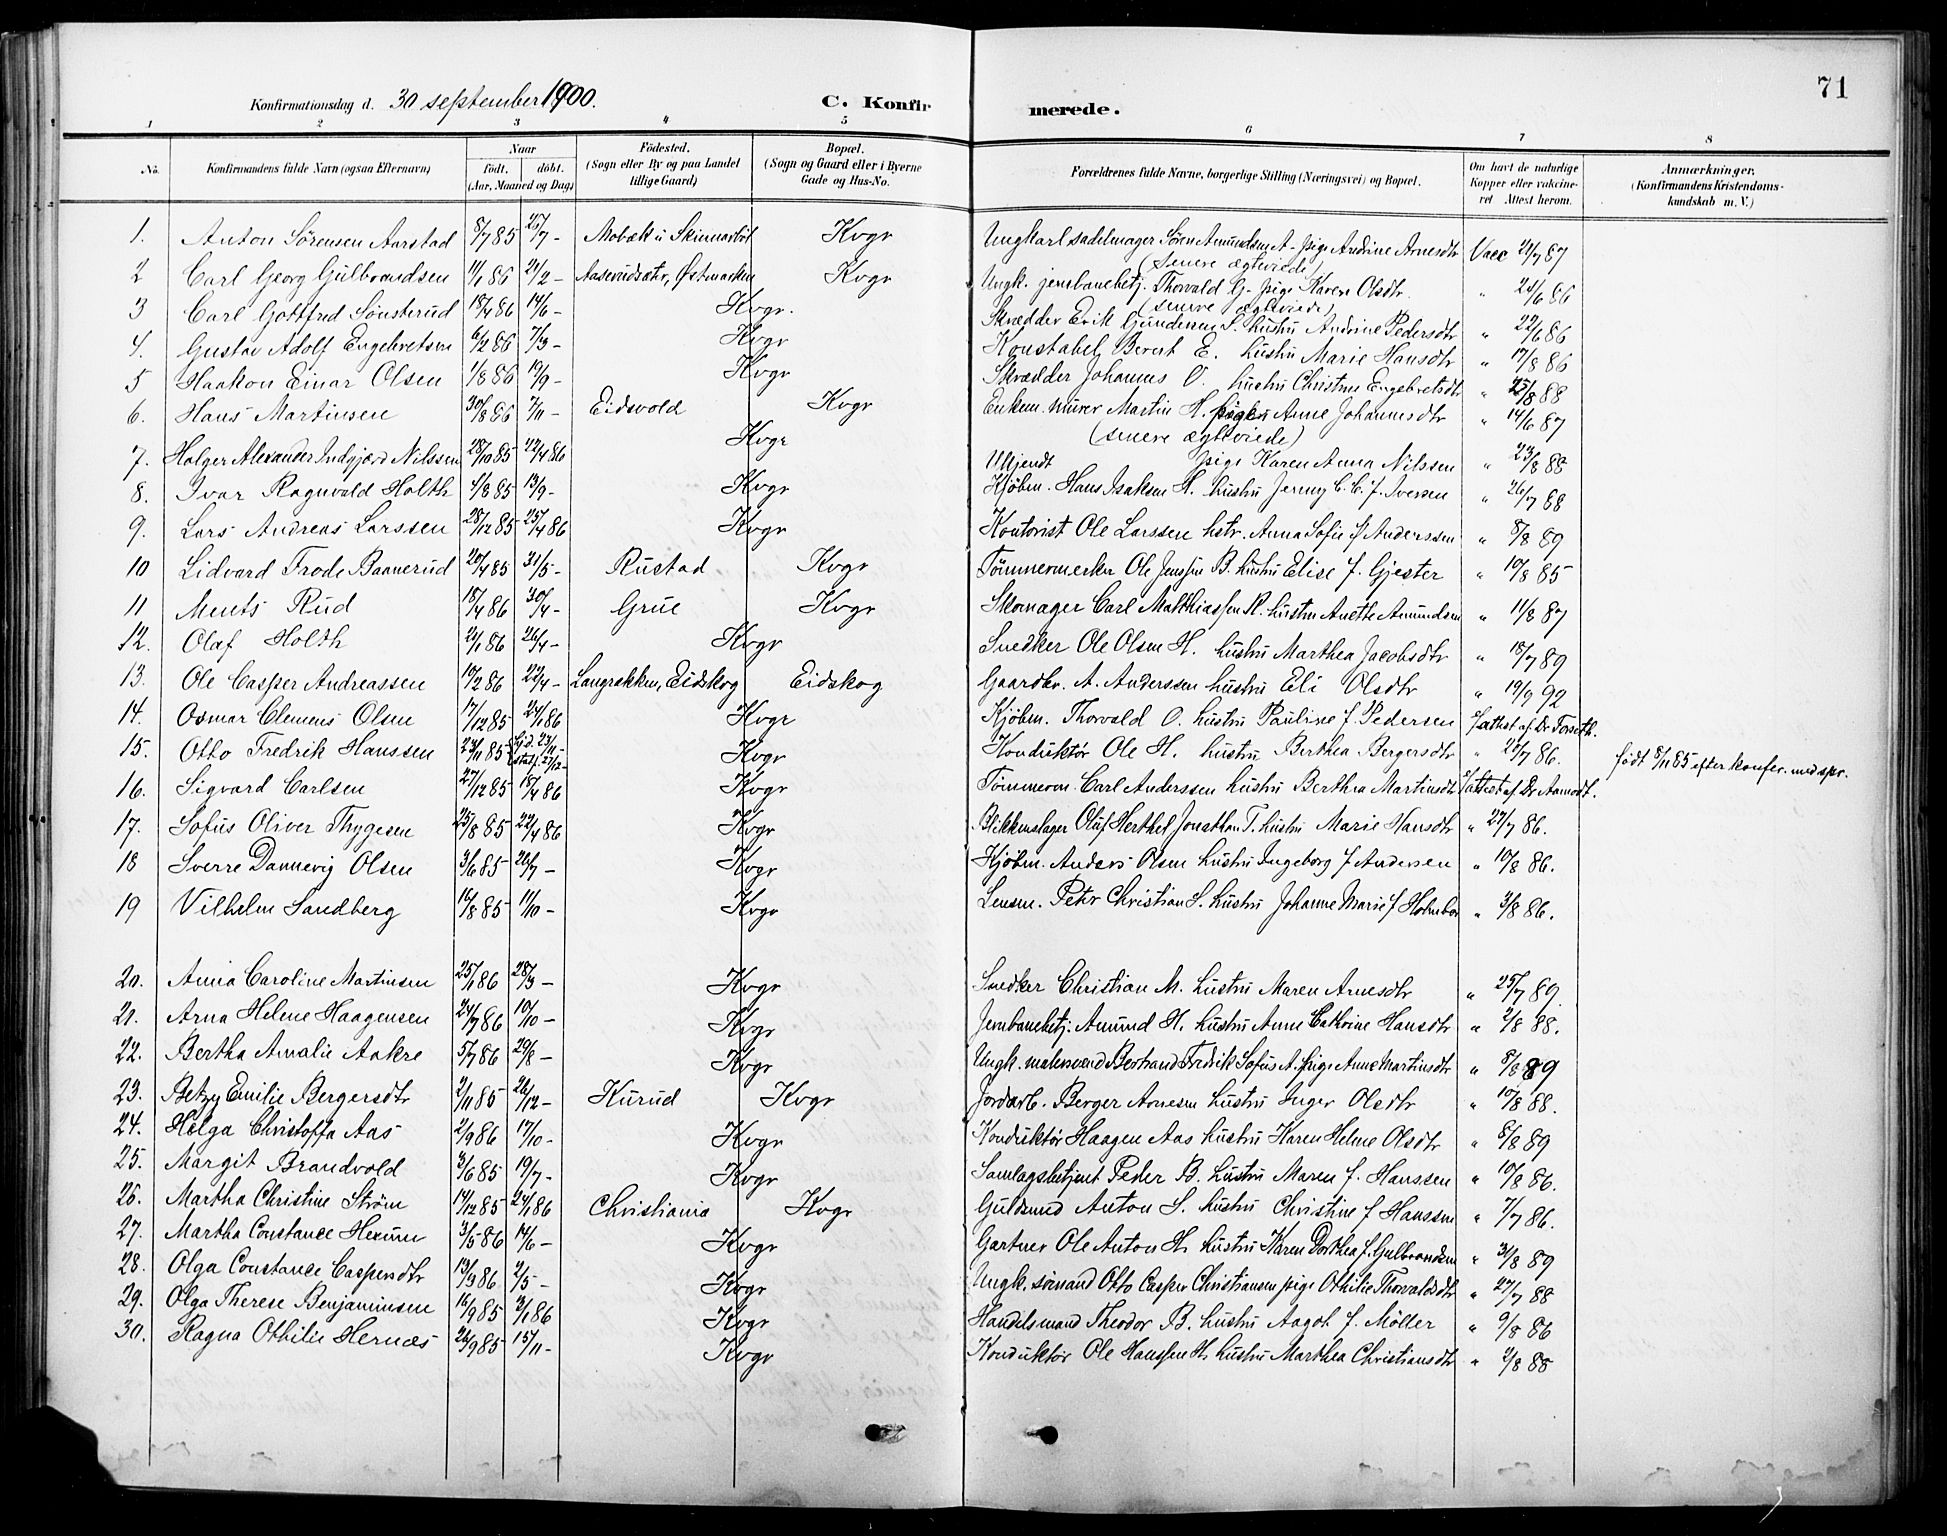 71
Konfirmationsdag d. 30 september 1900. C. Konfir merede.
1 2 3 4 5 6 7 8
No. Konfirmandens fulde Navn (ogsaa Efternavn) Naar födt. döbt. (Aar, Maaned og Dag) Födested. (Sogn eller By og paa Landet tillige Gaard) Bopæl. (Sogn og Gaard eller i Byerne Gade og Hus-No. Forældrenes fulde Navne, borgerlige Stilling (Næringsvei) og Bopæl. Om havt de naturlige Kopper eller vakcineret Attest herom. Anmærkninger. (Konfirmandens Kristendomskundskab m. V.)
1. Anton Sörensen Aarstad 8/7 85 25/7 - Mobæk u Skinnarböl Kvgr Ungkarl sadelmager Sören Amundsen A - pige Andrine Arnesdtr Vacc 21/7 87
(senere ægteviede)
2 Carl Georg Gulbrandsen 11/1 86 21/2 - Aaserudsætr, Østmarken Kvgr Ungk. jernbanebetj. Thorvald G - pige Karen Olsdtr " 24/6 86
(senere ægteviede)
3 Carl Gottfred Sönsterud 18/4 86 14/6 - Kvgr. Skrædder Erik Gundersen S. hustru Andrine Pedersdtr " 22/6 86
4. Gustav Adolf Engebretsen 6/2 86 7/3 - Kvgr Konstabel Berent E. hustru Marie Hansdtr " 17/8 86
5 Haakon Einar Olsen 1/8 86 19/9 - Kvgr Skrædder Johannes O. hustru Christine Engebretsdtr " 25/8 88
6. Hans Martinsen 30/8 86 7/11 - Eidsvold Kvgr Enkem. murer Martin H. pige Anne Johannesdtr " 14/6 87
(senere ægteviede)
7. Holger Alexander Indgjærd Nilssen 28/10 85 22/4 86 Kvgr Ulljendt pige Karen Anna Nilssen " 23/8 88
8. Ivar Ragnvald Holth 4/8 85 13/9 - Kvgr Kjöbm. Hans Isaksen H. hustru Jenny C. C. f. Iversen " 26/7 88
9. Lars Andreas Larssen 28/12 85 25/4 86 Kvgr Kontorist Ole Larssen hstr. Anna Sofie f Anderssen " 8/8 89
10 Lidvard Frode Baanerud 20/4 85 31/5 - Rustad Kvgr Tömmermerker Ole Jenssen B. hustru Elise f. Gjester " 10/8 85
11 Ments Rud 18/4 86 30/4 - Grue Kvgr Skomager Carl Matthiassen R. hustru Anette Amundsen " 11/8 87
12. Olaf Holth 21/1 86 26/4 - Kvgr Snedker Ole Olsen H. hustru Marthea Jacobsdtr " 18/7 89
13. Ole Casper Andreassen 19/2 86 22/4 - Langrækken, Eidskog Eidskog Gaardbr. A. Anderssen hustru Eli Olsdtr " 19/9 92
14. Osmar Clemens Olsen 17/12 85 24/1 86 Kvgr Kjöbm. Thorvald O. hustru Pauline f. Pedersen f/attest af Dr Forseth.
15. Otto Fredrik Hanssen 23/11 85 hjd. 23/11 - stadf. 27/12 - Kvgr Konduktör Ole H. hustru Berthea Bergersdtr " 20/7 86. født 8/11 85 efter konfer. med spr.
16. Sigvard Carlsen 27/12 85 18/4 86 Kvgr Tömmerm. Carl Anderssen hustru Berthea Martinsdtr f/attest af Dr Aamodt.
17. Sofus Oliver Thygesen 25/8 85 22/4 86 Kvgr Blikkenslager Oluf Herthel Jonathan T. hustru Marie Hansdtr " 27/7 86.
18 Sverre Dannevig Olsen 3/6 85 26/7 - Kvgr Kjöbm. Anders Olsen hustru Ingeborg f Andersen " 10/8 86.
19 Vilhelm Sandberg 14/8 85 11/10 - Kvgr Lensm. Peter Christian S. hustru Johanne Marie f Holmboe " 3/8 86.
20. Anna Caroline Martinsen 25/1 86 28/3 - Kvgr Snedker Christian M. hustru Maren Arnesdtr " 25/7 89.
21. Arna Helene Haagensen 24/7 86 10/10 - Kvgr Jernbanebetj. Amund H. hustru Anne Cathrine Hansdtr " 2/8 88.
22. Bertha Amalie Aakre 5/7 86 29/8 - Kvgr Ungk. malersvend Bertrand Fredrik Sofus A. pige Anne Martinsdtr " 8/8 89
23. Betzy Emilie Bergersdtr 2/11 85 26/12 - Kurud Kvgr Jordarb. Berger Arnesen hustru Inger Olsdtr " 10/8 88.
24. Helga Christoffa Aas 2/9 86 17/10 - Kvgr Konduktör Haagen Aas hustru Karen Helene Olsdtr " 8/8 89
25. Margit Brandvold 3/6 85 19/7 - Kvgr Samlagsbetjent Peder B. hustru Maren f. Hanssen " 10/8 86.
26. Martha Christine Ström 14/12 85 24/1 86 Christiania Kvgr Guldsmed Anton S. hustru Christine f Hanssen " 7/7 86.
27. Martha Constance Hexum 3/5 86 14/6 - Kvgr Gartner Ole Anton H. hustru Karen Dorthea f. Gulbrandsen " 31/8 89
28. Olga Constance Caspersdtr 13/3 86 2/5 - Kvgr Ungk. sömand Otto Casper Christiansen pige Othilie Thorvaldsdtr " 27/7 88
29. Olga Therese Benjaminsen 16/9 85 3/1 86 Kvgr Handelsmand Theodor B. hustru Aagot f. Möller " 9/8 86
30. Ragna Othilie Hernæs 26/9 85 15/11 - Kvgr Konduktör Ole Hanssen H. hustru Marthea Christiansdtr " 2/8 88